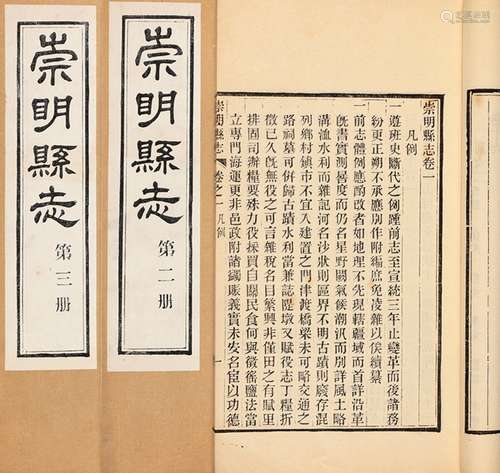 崇明縣志
第三册
崇明縣志
第二册
崇明縣志卷一
凡例
一遵班史斷代之例踵前志至宣統三年止變革而後諸務
紛更正朔不承應別作附編庶免凌雜以俟續纂
一前志體例應酌改者如地理不先現轄疆域而首詳沿革
既書實測晷度而仍名星野闕氣候潮汛而別詳風土略
溝洫水利而雜記河名沙狀則區界不明古蹟則廢存混
列鄉村鎮市不宜入建置之門津渡橋梁未可略交通之
路祠墓可併歸古蹟水利當兼誌隄墩又賦役志丁糧折
徵已久既無役之可言雜稅名目繁興非僅田之有賦里
排固司辦糧要殊力役採買自關民食何與徵徭鹽法當
立專門海運更非邑政附諸蠲賑義實未安名宦以功德
崇明縣志 卷之一 凡例 一